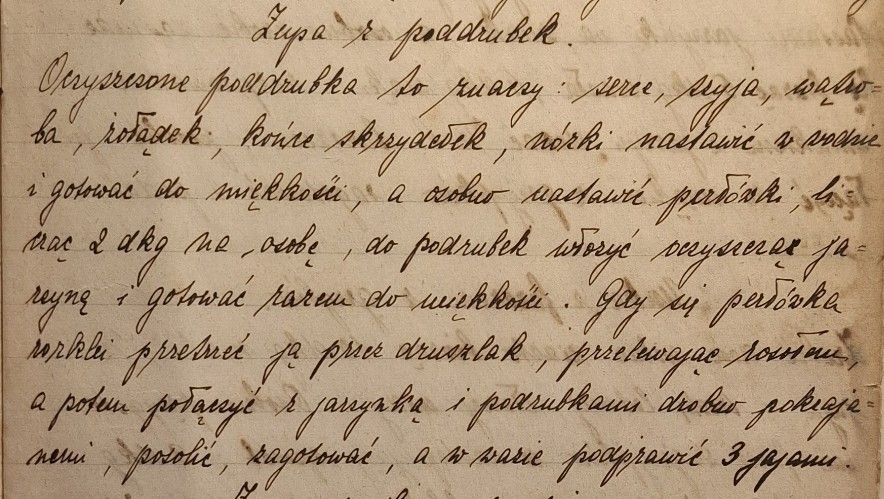 Zupa z poddrubek.
Oczyszczone poddrubka to znaczy: serce, szyja, wątro=
ba, żołądek, końce skrzydełek, nóżki nastawić w wodzie
i gotować do miękkości, a osobno nastawić perłówki, li
cząc 2 dkg na osobę, do podrubek włożyć oczyszcząć ja=
rzyną i gotować razem do miękkości. Gdy się perłówka
rozklei przetrzeć ją przez druszlak, przelewając rosołem,
a potem połączyć z jarzynką i podrubkami drobno pokraja=
nemi, posolić, zagotować, a w wazie podprawić 3 jajami.